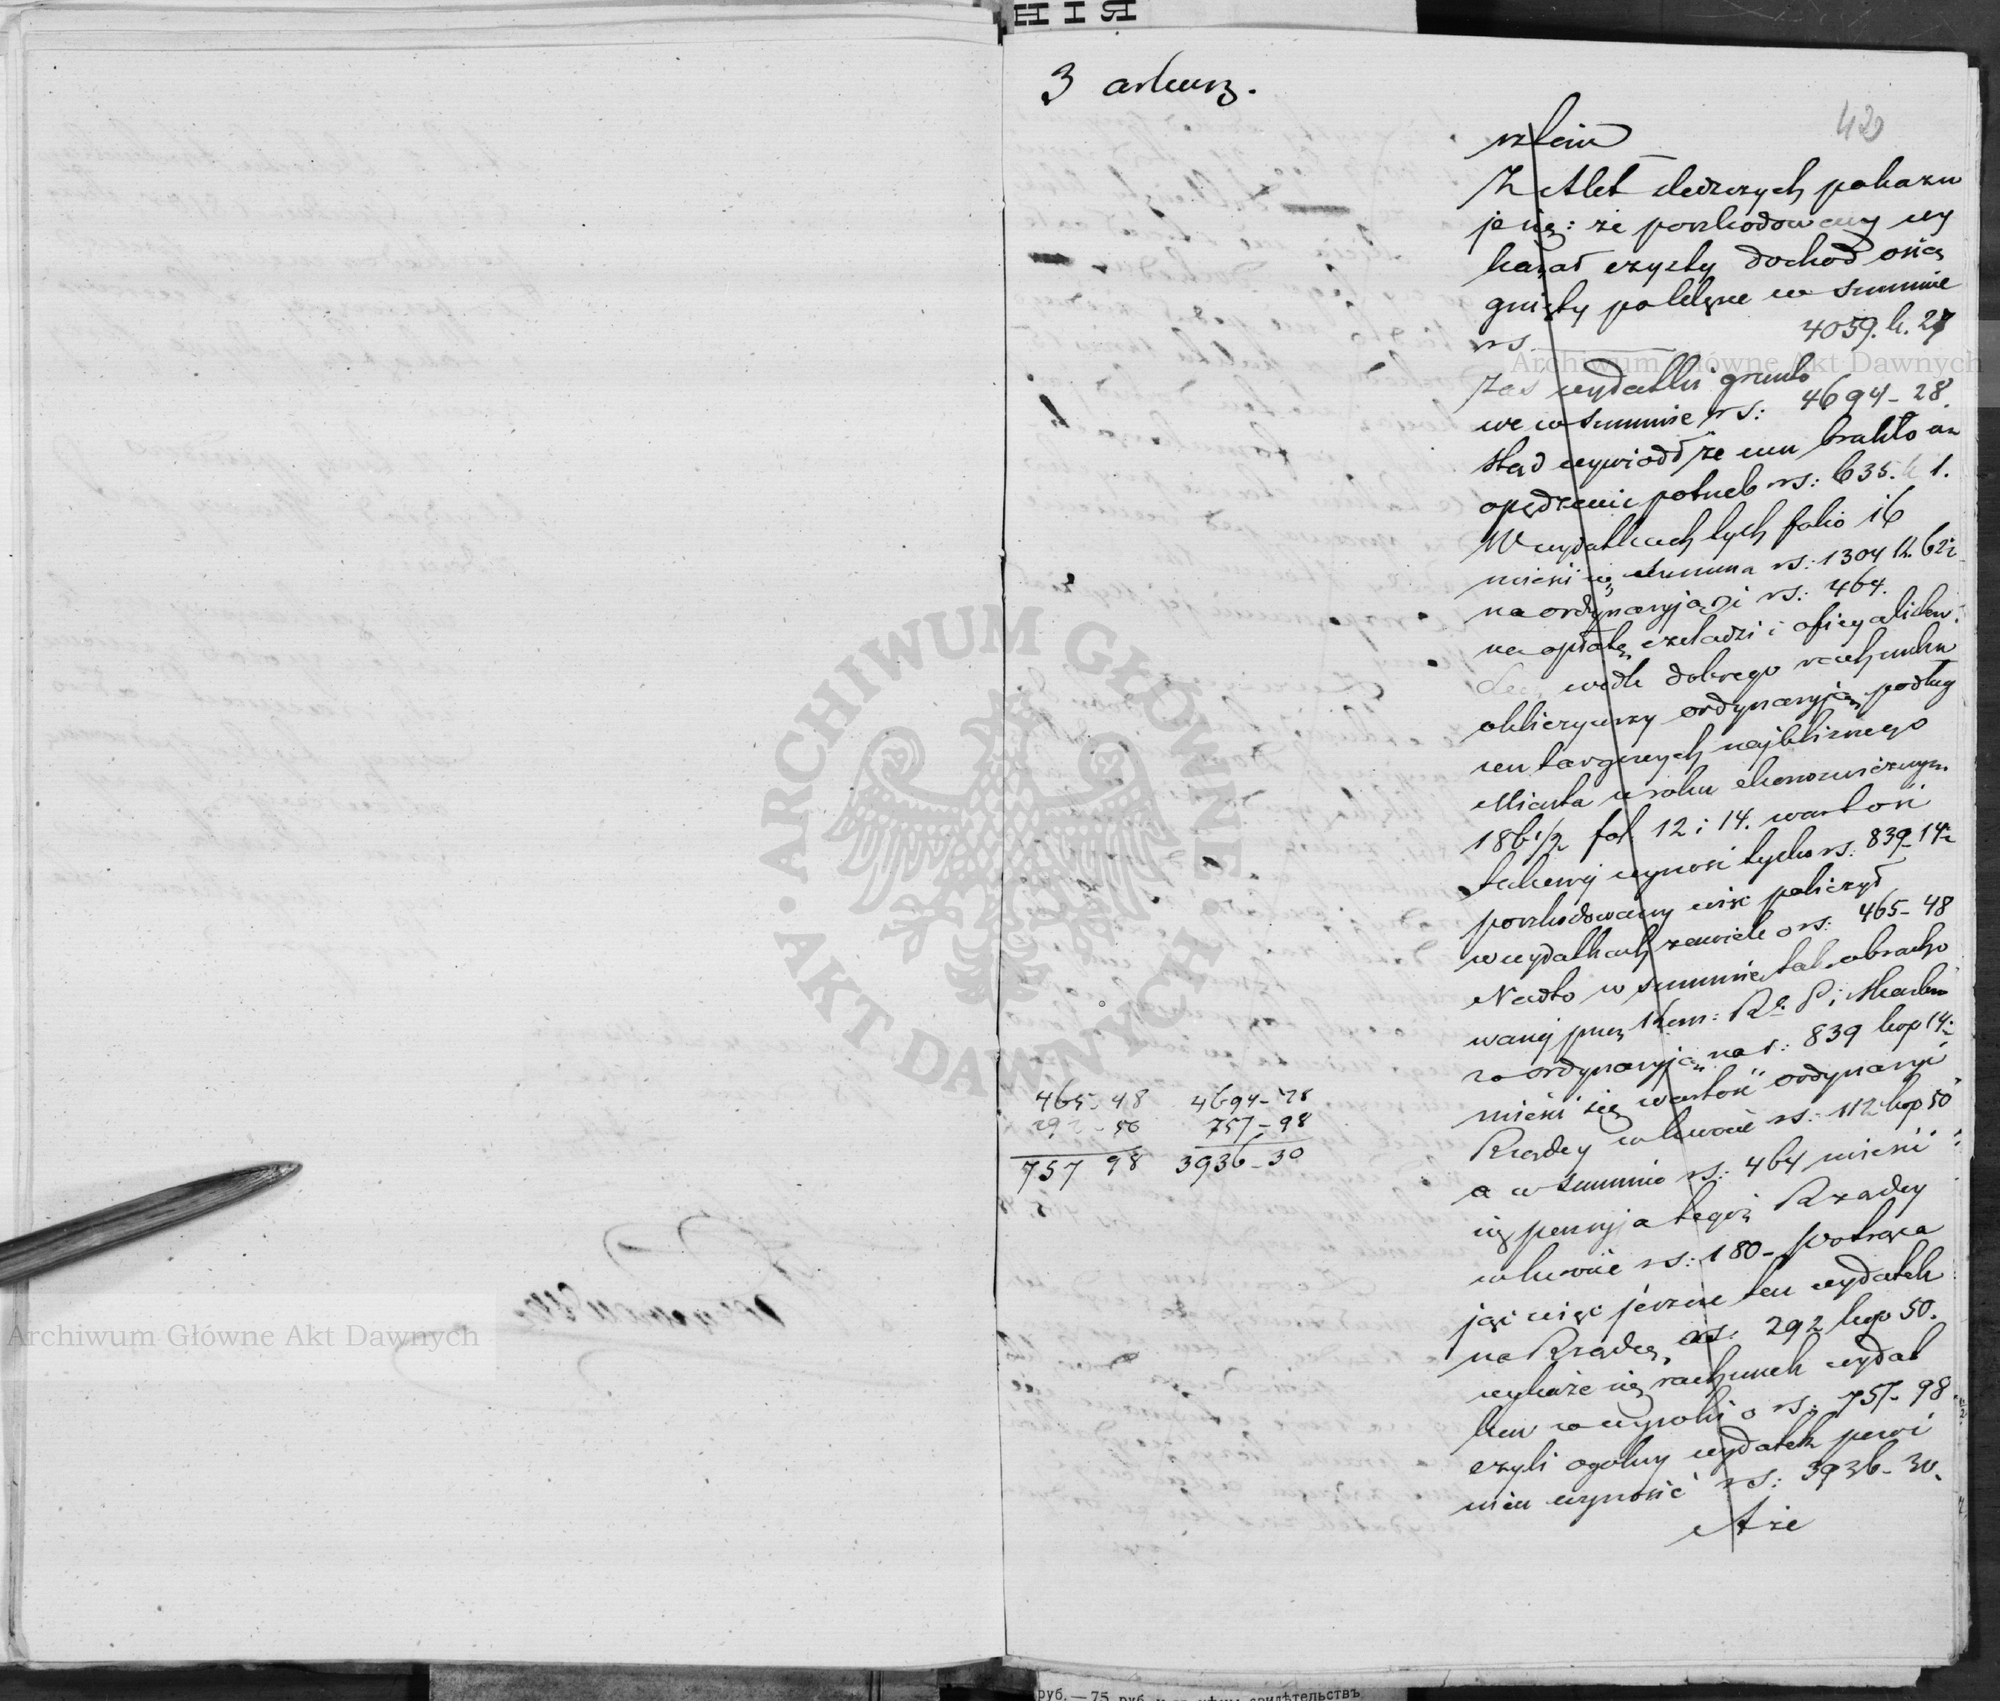 НІЯ
3 arkusz.
42
Z Akt śledczych pokazu
je się: że poszkodowany wy
kazał czysty dochód osią
gnięty w summie
rs. 4059. k. 27
Zaś wydatki grunto
we w summie rs: 4694 - 28.
stąd wywiódł że mu brakło na
opędzenie potrzeb rs: 635. k 1.
W wydatkach tych folio 16
mieści się summa rs: 1304 k. 62½
na ordynaryją i rs: 464.
na opłatę czeladzi i oficyalistów.
Lecz wedle dobrego rachunku
obliczywszy ordynaryją podług
cen targowych najbliższego
Miasta w roku ekonomicznym
1861/2 fol. 12 i 14. wartość
takowej wynosi tylko rs: 839 - 14½
poszkodowany więc policzył
w wydatkach zawiele o rs: 465 - 48
Nadto w summie tak obracho
wanej przez Kom: Rz. P. i Skarbu
za ordynaryją na r: 839 kop 14½
mieści się wartość ordynaryi
Rządcy w kwocie rs: 112 kop 50
a w summie rs: 464 mieści
się pensyja tegoż Rządcy
w kwocie rs: 180 - Potrąca
jąc więc jeszcze ten wydatek
na Rządcę rs: 292 kop 50.
wykaże się rachunek wydat
ków za wysoki o rs: 757 - 98
czyli ogólny wydatek powi
nien wynosić rs: 3936 - 30.
A że
465 - 48 4694 - 28
292 - 50 757 - 98
757 98 3936 - 30
ARCHIWUM GŁÓWNE AKT DAWNYCH
Archiwum Główne Akt Dawnych
Archiwum Główne Akt Dawnych
руб. — 75 руб.